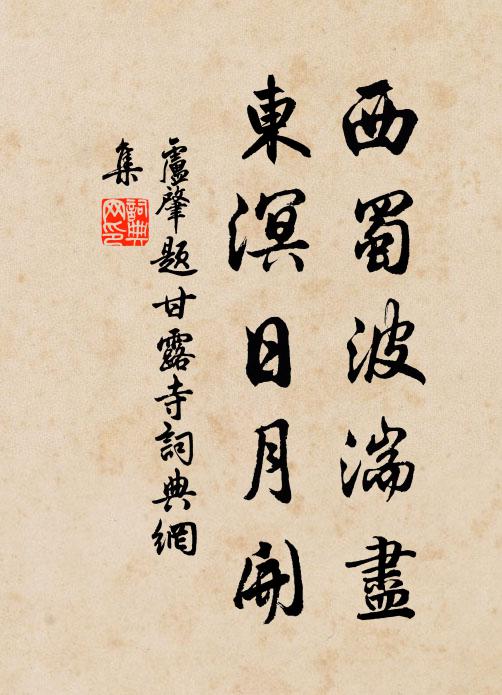 西蜀波湍盡
東溟日月開
盧肇題甘露寺詞典網
集
詞典網印